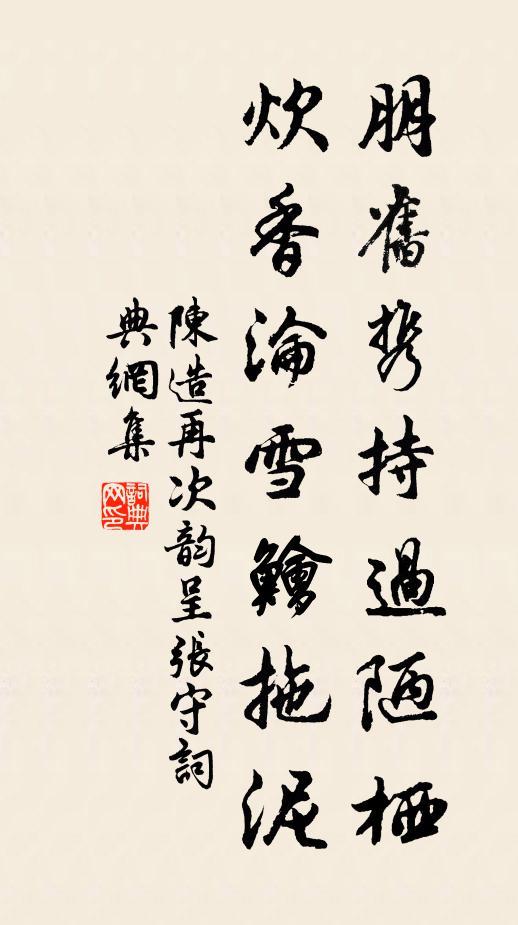 朋舊携持過陋栖
炊香淪雪鱠拖泥
陳造再次韵呈張守詞
典網集
詞典網印